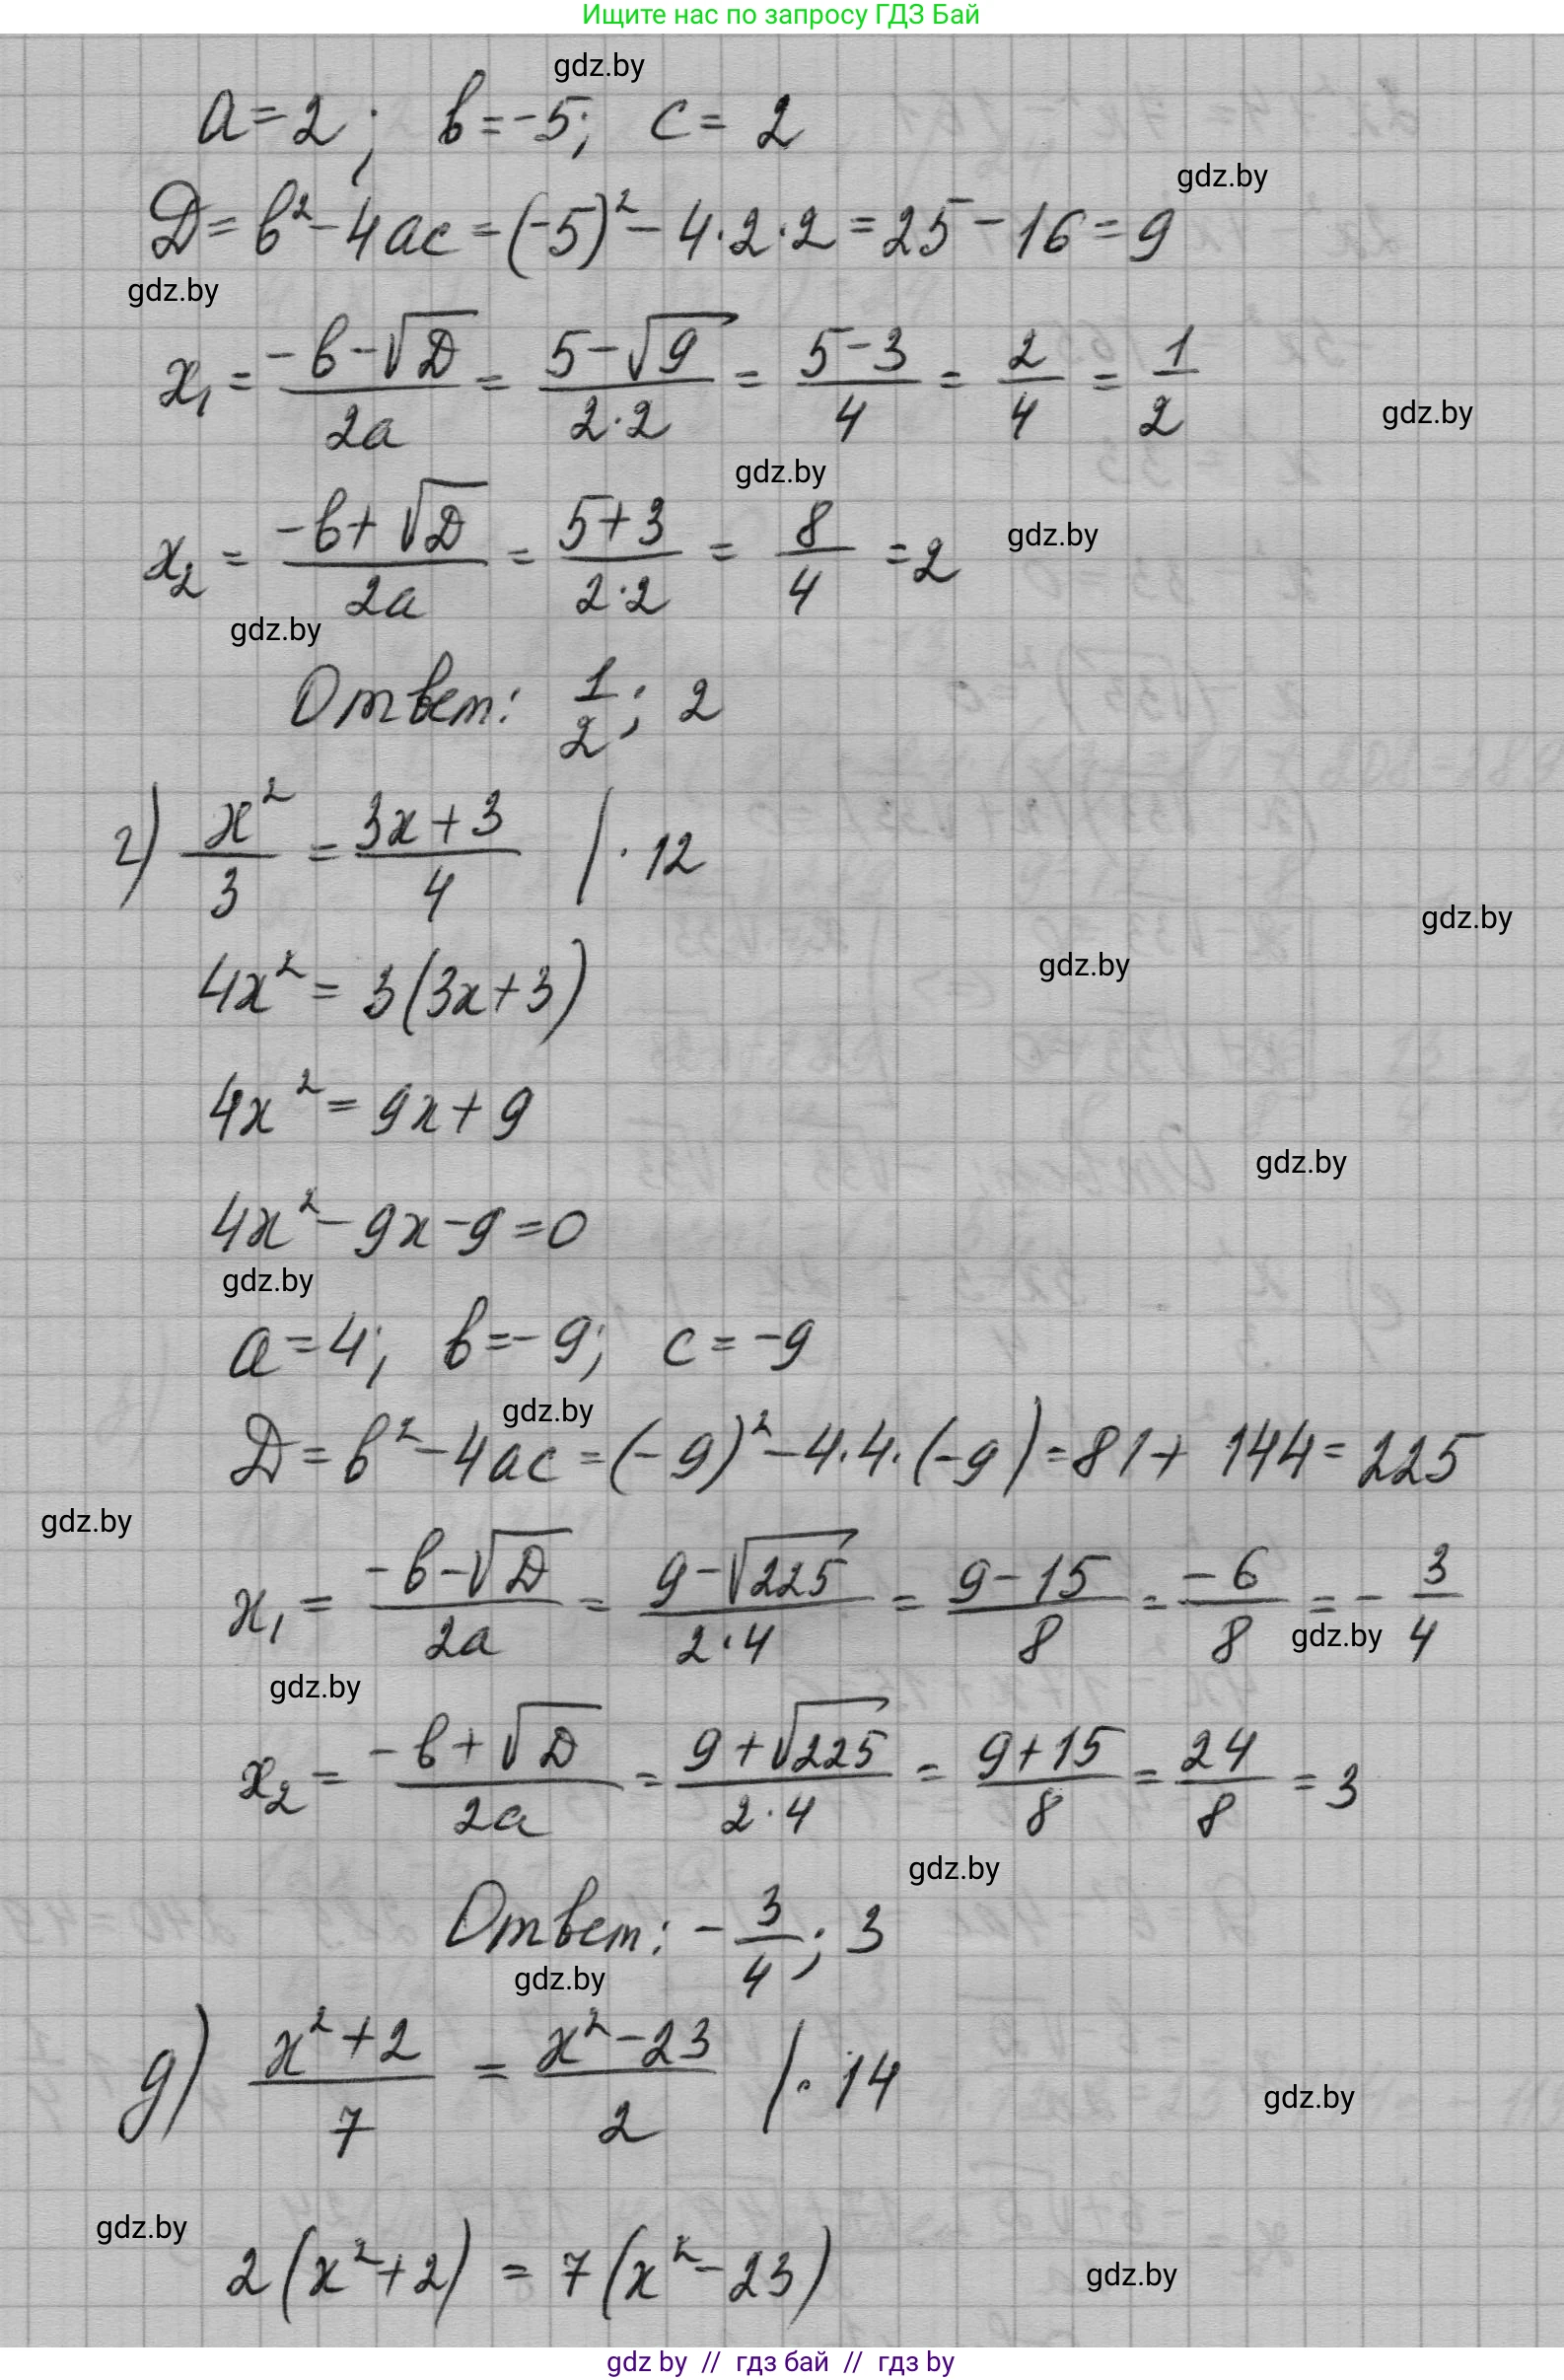 Ищите нас по запросу ГДЗ Бай
gdz.by
a=2; b=-5; c=2
gdz.by
D=b²-4ac=(-5)²-4·2·2=25-16=9
gdz.by
x₁ = (-b-√D)/(2a) = (5-√9)/(2·2) = (5-3)/4 = 2/4 = 1/2
gdz.by
gdz.by
x₂ = (-b+√D)/(2a) = (5+3)/(2·2) = 8/4 = 2
gdz.by
gdz.by
Ответ: 1/2; 2
г) x²/3 = (3x+3)/4 |·12
gdz.by
gdz.by
4x² = 3(3x+3)
4x² = 9x+9
gdz.by
4x²-9x-9=0
gdz.by
a=4; b=-9; c=-9
gdz.by
D=b²-4ac=(-9)²-4·4·(-9)=81+144=225
gdz.by
x₁ = (-b-√D)/(2a) = (9-√225)/(2·4) = (9-15)/8 = -6/8 = -3/4
gdz.by
gdz.by
x₂ = (-b+√D)/(2a) = (9+√225)/(2·4) = (9+15)/8 = 24/8 = 3
gdz.by
Ответ: -3/4; 3
gdz.by
д) (x²+2)/7 = (x²-23)/2 |·14
gdz.by
gdz.by
2(x²+2) = 7(x²-23)
gdz.by
gdz by // гдз бай // гдз by